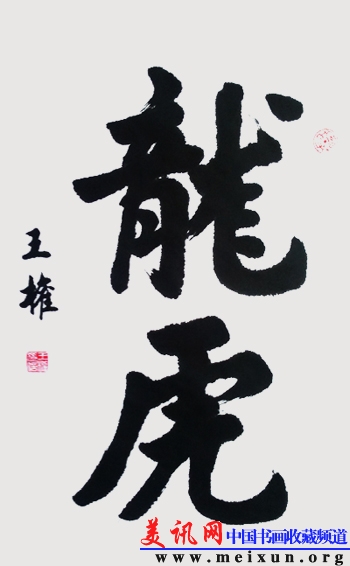 龍虎
王權
美讯网 中国书画收藏频道
www.meixun.org